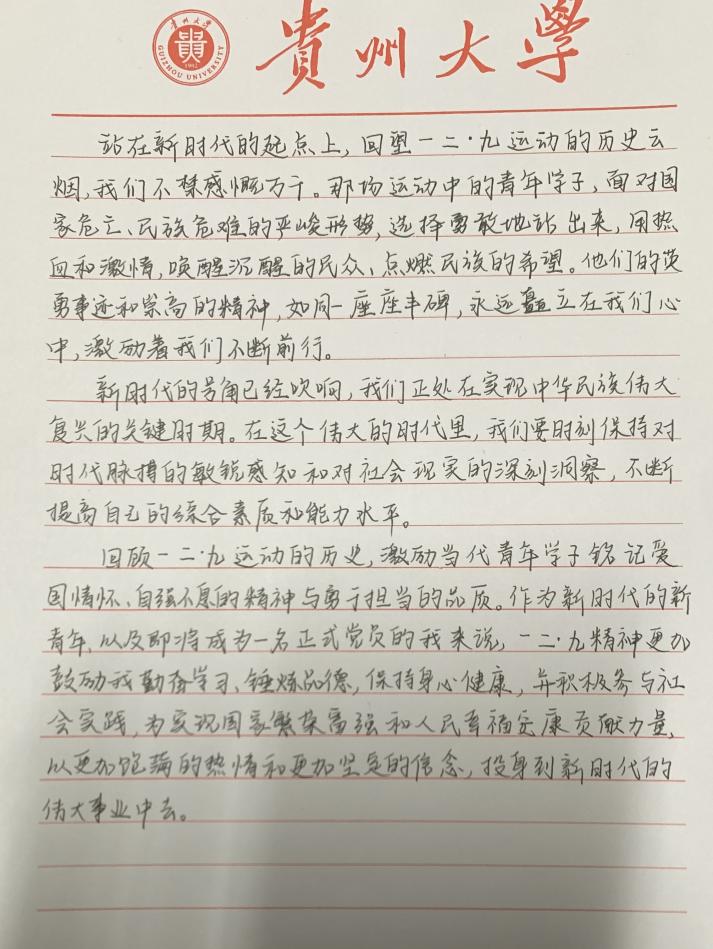 貴州大學
貴州大学
GUIZHOU UNIVERSITY
1902
站在新时代的起点上，回望一二·九运动的历史云
烟，我们不禁感慨万千。那场运动中的青年学子，面对国
家危亡、民族危难的严峻形势，选择勇敢地站出来，用热
血和激情，唤醒沉醒的民众、点燃民族的希望。他们的英
勇事迹和崇高的精神，如同一座座丰碑，永远矗立在我们心
中，激励着我们不断前行。
新时代的号角已经吹响，我们正处在实现中华民族伟大
复兴的关键时期。在这个伟大的时代里，我们要时刻保持对
时代脉搏的敏锐感知和对社会现实的深刻洞察，不断
提高自己的综合素质和能力水平。
回顾一二·九运动的历史，激励当代青年学子铭记爱
国情怀、自强不息的精神与勇于担当的品质。作为新时代的新
青年，以及即将成为一名正式党员的我来说，一二·九精神更加
鼓励我勤奋学习、锤炼品德，保持身心健康，并积极参与社
会实践，为实现国家繁荣富强和人民幸福安康贡献力量，
以更加饱满的热情和更加坚定的信念，投身到新时代的
伟大事业中去。